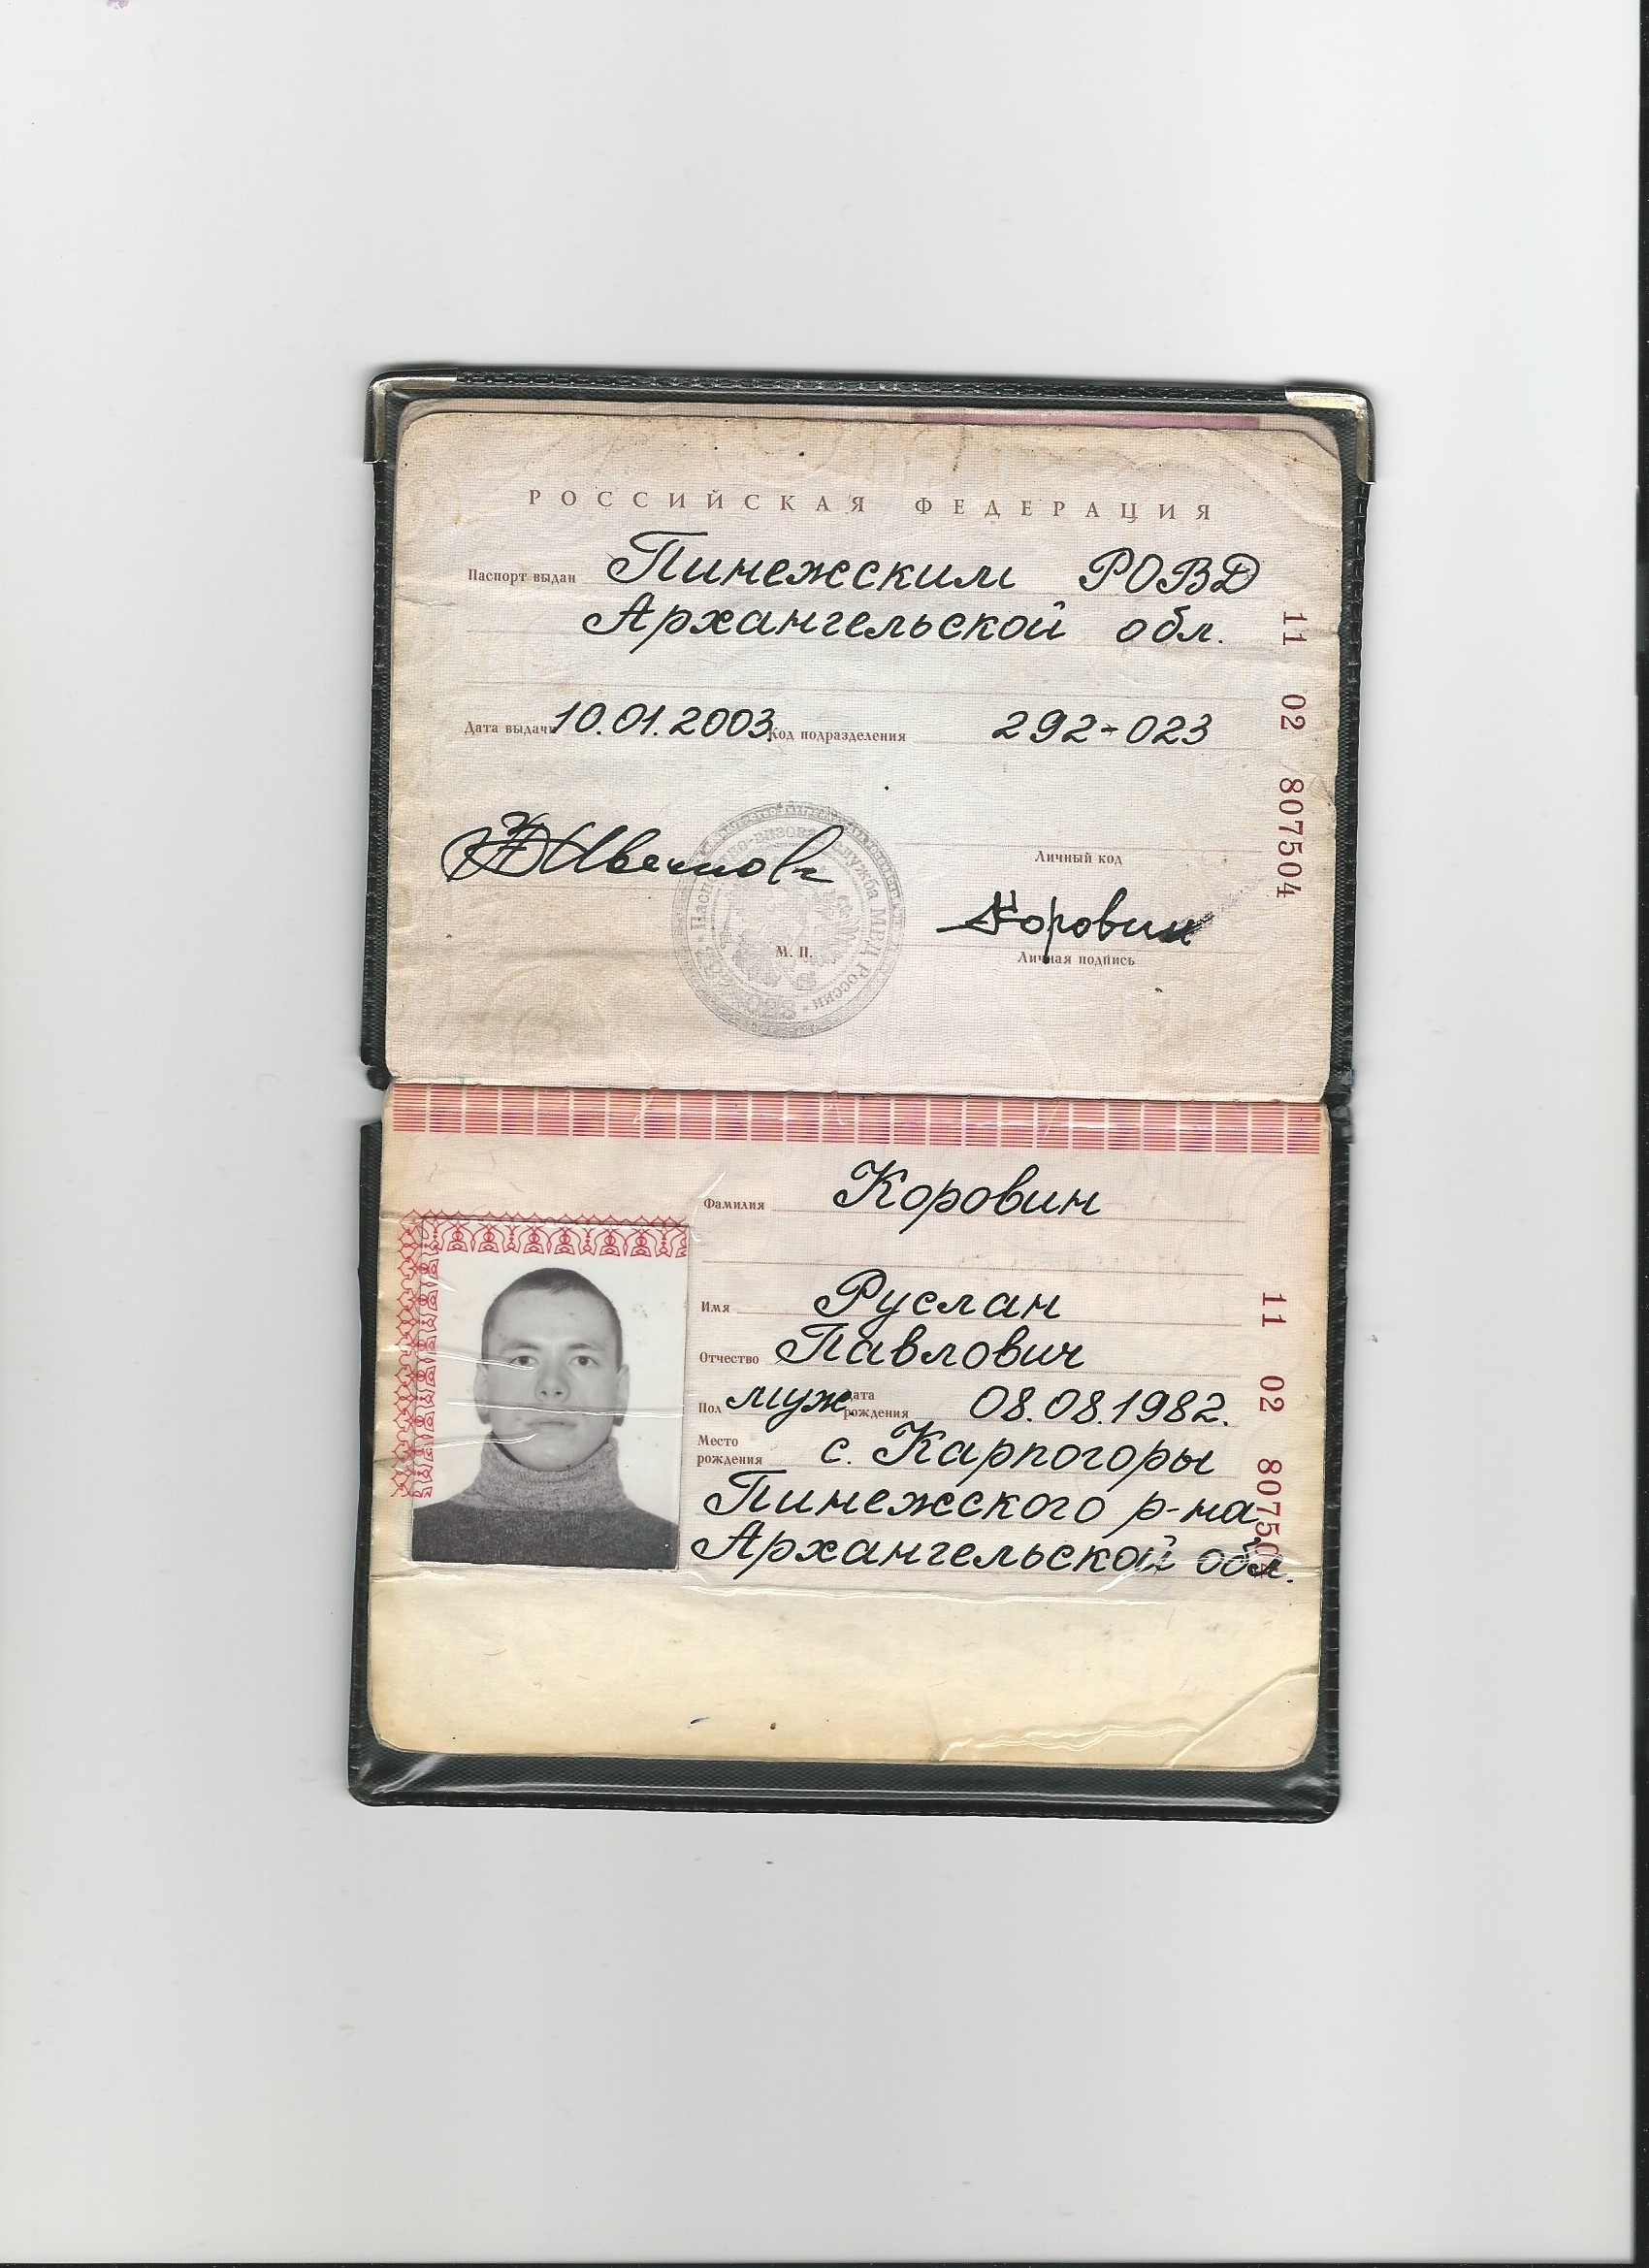 РОССИЙСКАЯ ФЕДЕРАЦИЯ
Паспорт выдан Пинежским РОВД
Архангельской обл.
Дата выдачи 10.01.2003. Код подразделения 292-023
Личный код
Коровин
М. П.
Личная подпись
11 02 807504
Фамилия Коровин
Имя Руслан
Отчество Павлович
Пол муж. Дата рождения 08.08.1982.
Место рождения с. Карпогоры
Пинежского р-на
Архангельской обл.
11 02 807504